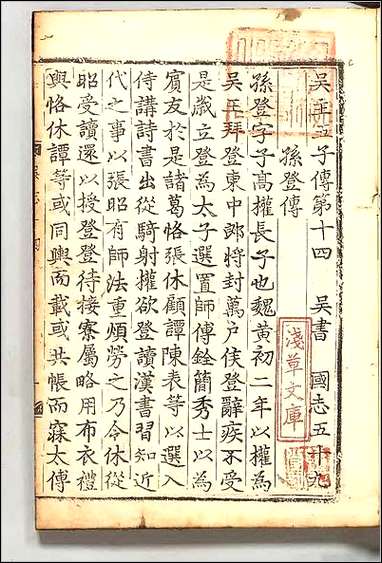 吳主五子傳第十四　吳書　國志五十九
孫登傳
孫登字子髙權長子也魏黃初二年以權為
吳王拜登東中郎將封萬户侯登辭疾不受
是歲立登為太子選置師傅銓簡秀士以為
賔友於是諸葛恪張休顧譚陳表等以選入
侍講詩書出從騎射權欲登讀漢書習知近
代之事以張昭有師法重煩勞之乃令休從
昭受讀還以授登登待接寮屬略用布衣禮
與恪休譚等或同輿而載或共帳而寐太傅
淺草文庫